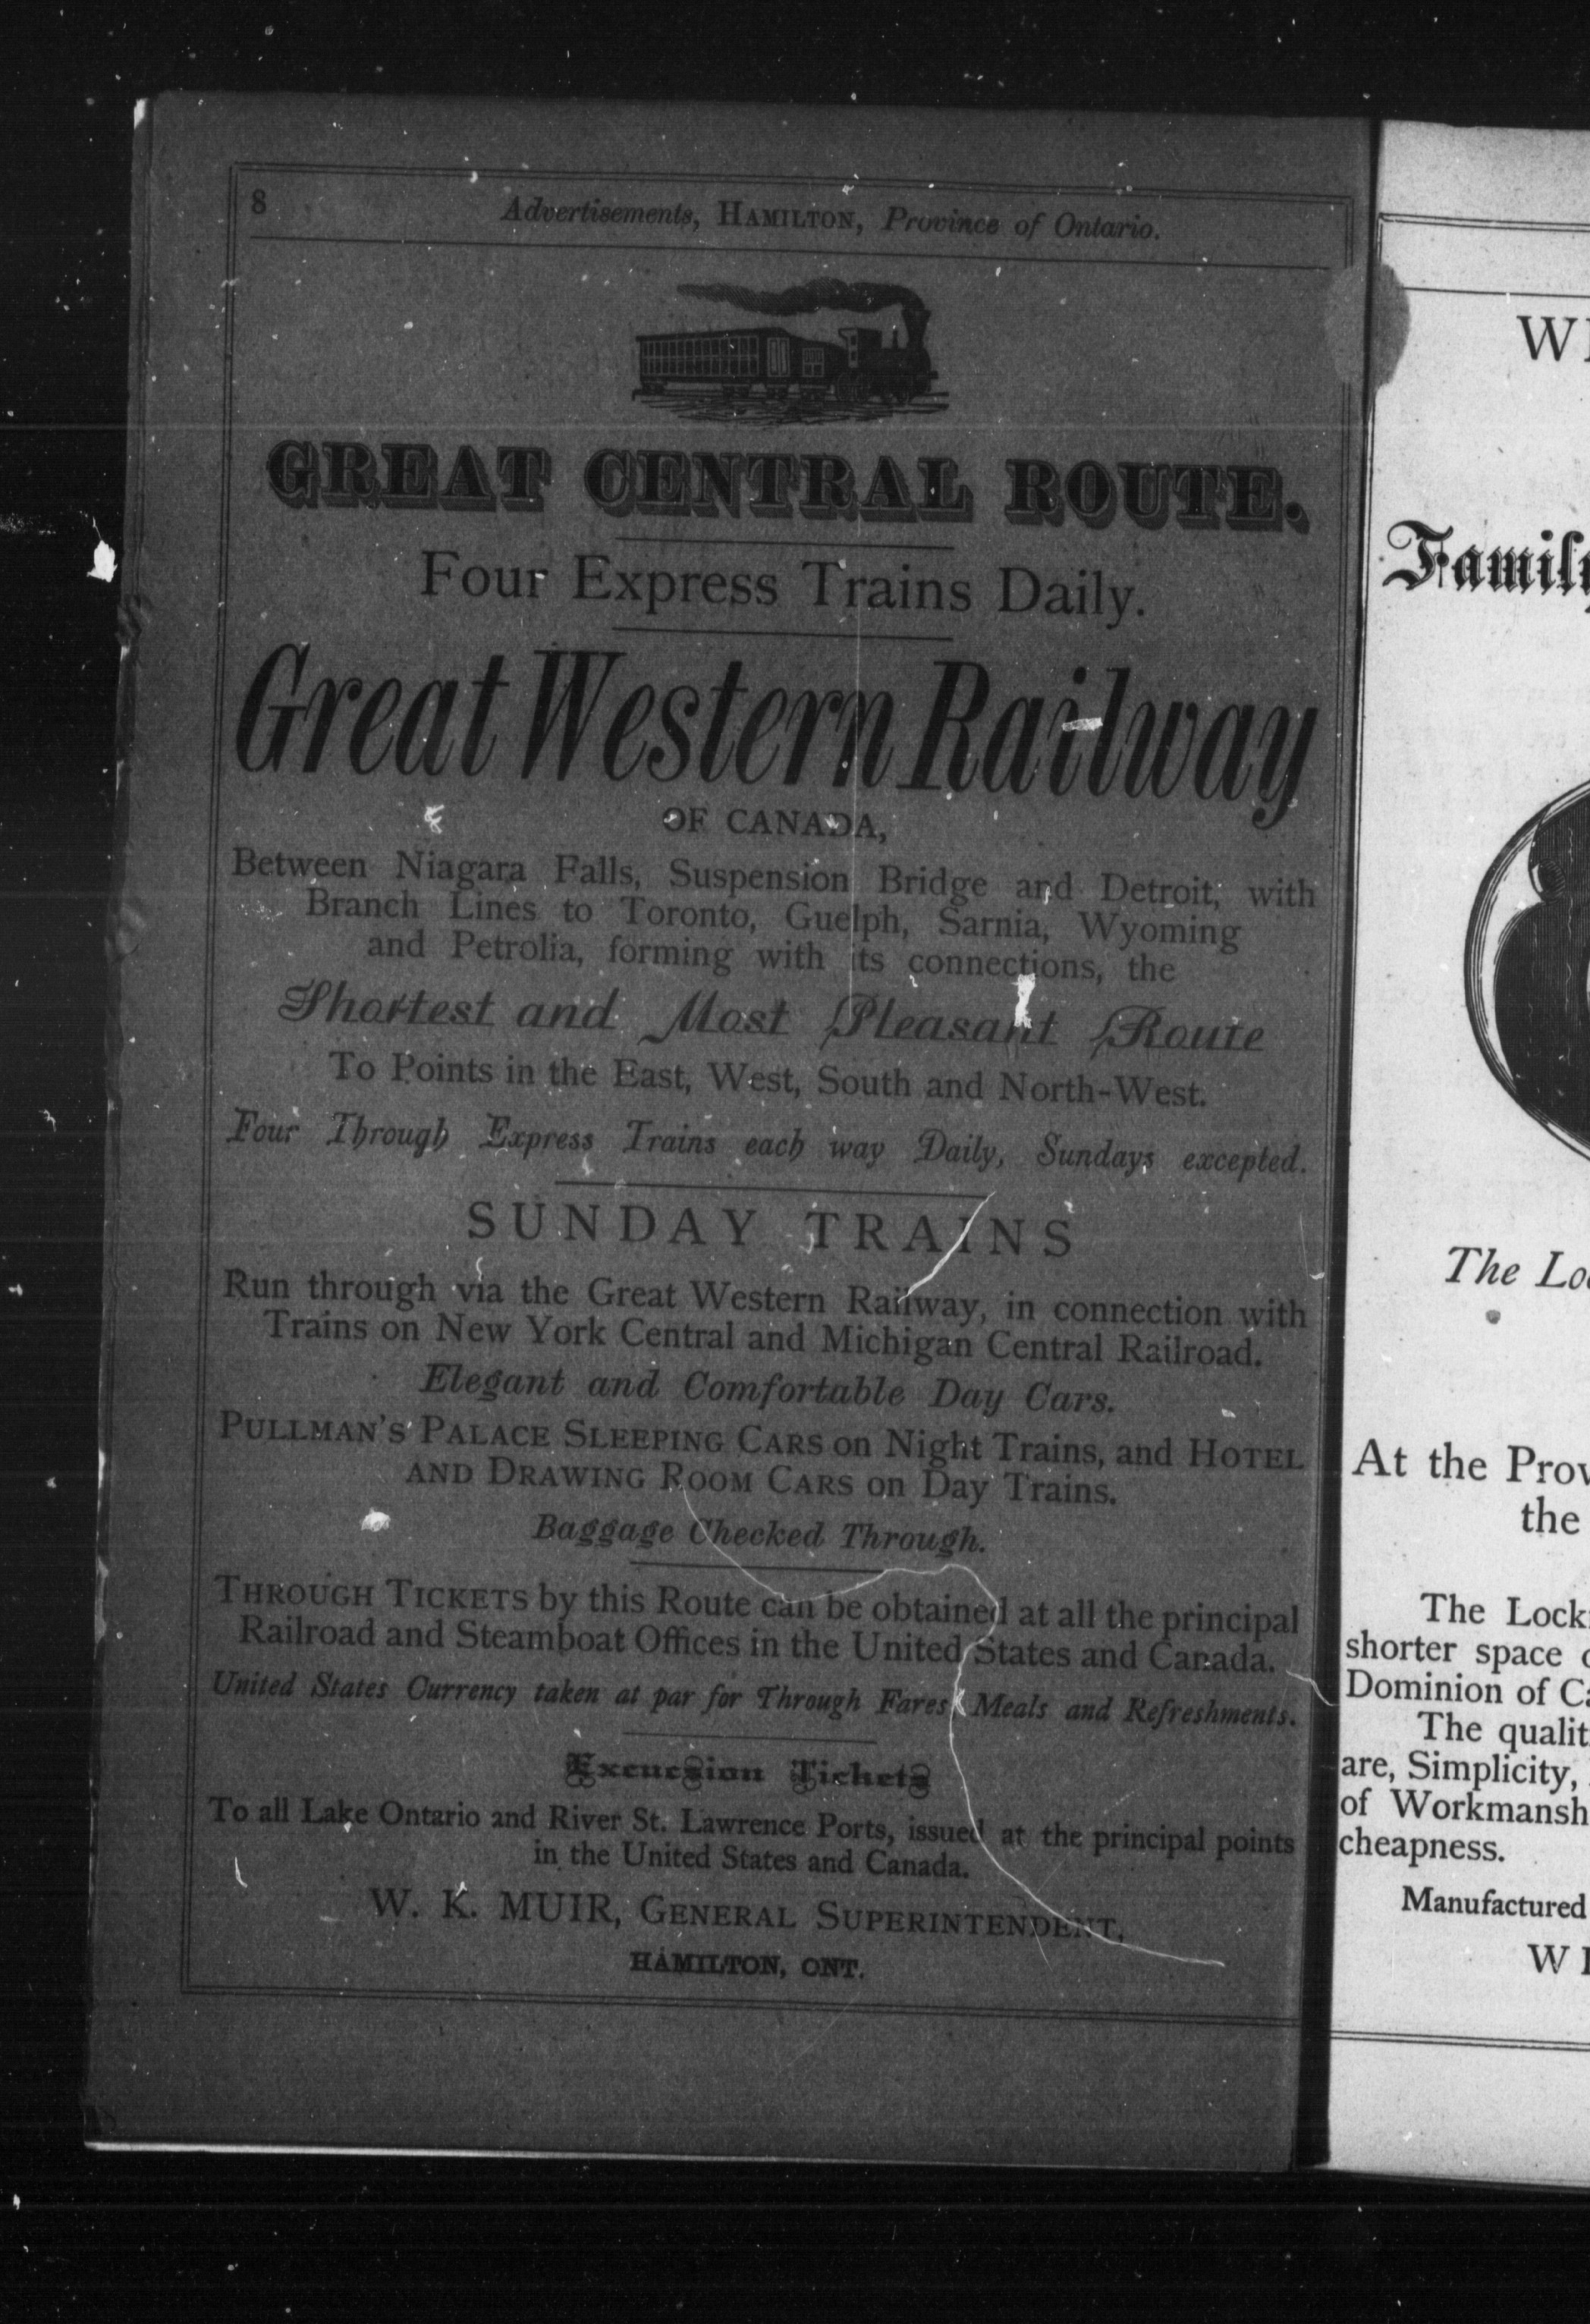 8
Advertisements, HAMILTON, Province of Ontario.
GREAT CENTRAL ROUTE.
Four Express Trains Daily.
Great Western Railway
OF CANADA,
Between Niagara Falls, Suspension Bridge and Detroit, with
Branch Lines to Toronto, Guelph, Sarnia, Wyoming
and Petrolia, forming with its connections, the
Shortest and Most Pleasant Route
To Points in the East, West, South and North-West.
Four Through Express Trains each way Daily, Sundays excepted.
SUNDAY TRAINS
Run through via the Great Western Railway, in connection with
Trains on New York Central and Michigan Central Railroad.
Elegant and Comfortable Day Cars.
PULLMAN'S PALACE SLEEPING CARS on Night Trains, and HOTEL
AND DRAWING ROOM CARS on Day Trains.
Baggage Checked Through.
THROUGH TICKETS by this Route can be obtained at all the principal
Railroad and Steamboat Offices in the United States and Canada.
United States Currency taken at par for Through Fares Meals and Refreshments.
Excursion Tickets
To all Lake Ontario and River St. Lawrence Ports, issued at the principal points
in the United States and Canada.
W. K. MUIR, GENERAL SUPERINTENDENT,
HAMILTON, ONT.
The
At the
the
The
shorter space
Dominion of
The
are, Simplicity,
of
cheapness.
Manufactured